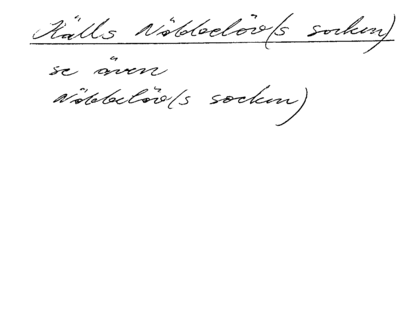 Källs Nöbbelöv(s socken)
se även
Nöbbelöv(s socken)